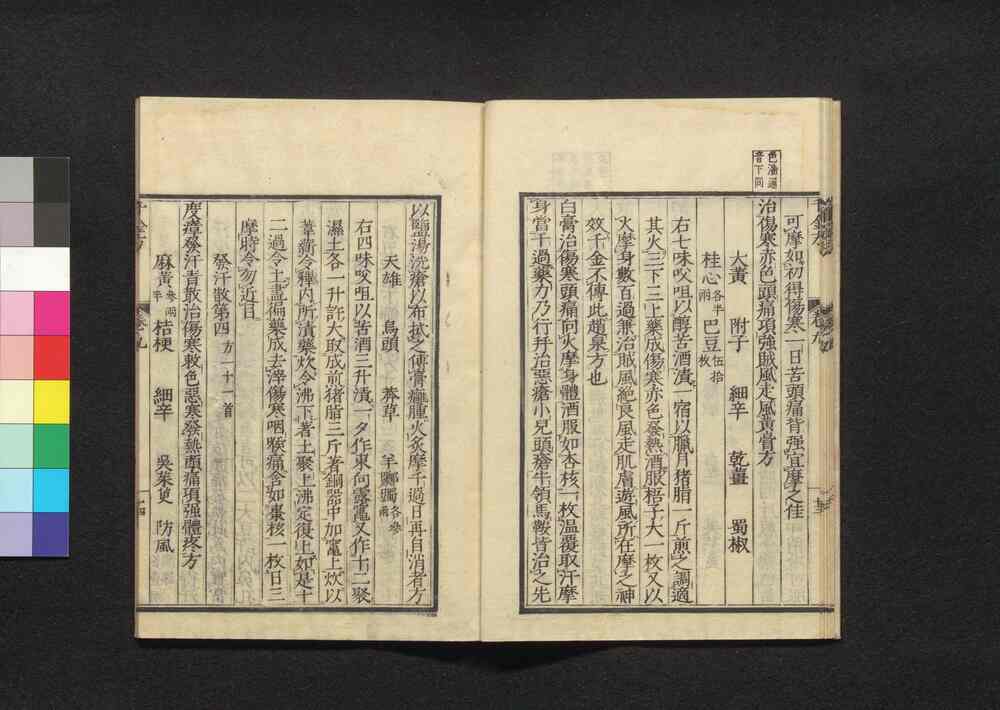 色潘運
音下同
可摩如初得傷寒一日苦頭痛背强宜摩之佳
治傷寒亦色頭痛項強賊風走風黃膏方
大黃 附子 細辛 乾薑 蜀椒
桂心各半兩 巴豆伍拾枚
右七味㕮咀以醇苦酒漬一宿以臘月猪脂一斤煎之調適
其火三下三上藥成傷寒亦色發熱酒服梧子大一枚又以
火摩身數百過兼治賊風絕良風走肌膚遊風所在摩之神
效千金不傳此趙泉方也
白膏治傷寒頭痛向火摩身體酒服如杏核一枚溫覆取汗摩
身當千過藥力乃行并治惡瘡小兒頭瘡牛領馬鞍皆治之先
以鹽湯洗瘡以布拭之傅膏癰腫火炙摩千過日再自消者方
天雄 烏頭 莽草 羊躑躅各參兩
右四味㕮咀以苦酒三升漬一夕作東向露竈又作十二聚
濕土各一升許大取成煎猪脂三斤著銅器中加竈上炊以
葦薪令釋內所漬藥炊令沸下著土聚上沸定復上如是十
二過令土盡徧藥成去滓傷寒咽喉痛含如棗核一枚日三
摩時令勿近目
發汗散第四方一十一首
度瘴發汗青散治傷寒敕色惡寒發熱頭痛項强體疼方
麻黃參兩半 桔梗 細辛 吳茱萸 防風
千金方
卷九
十三
十四